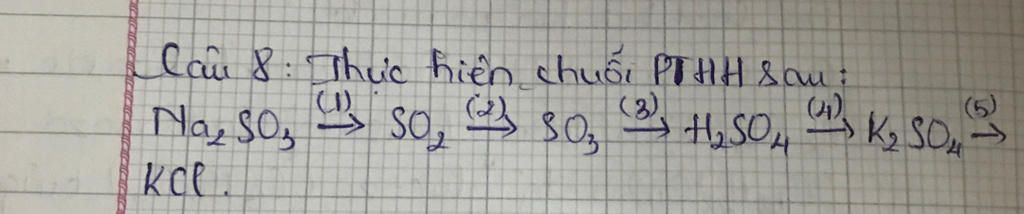 Câu 8: Thực hiện chuỗi PTHH sau:
Na₂SO₃ (1)→ SO₂ (2)→ SO₃ (3)→ H₂SO₄ (4)→ K₂SO₄ (5)→
KCl.